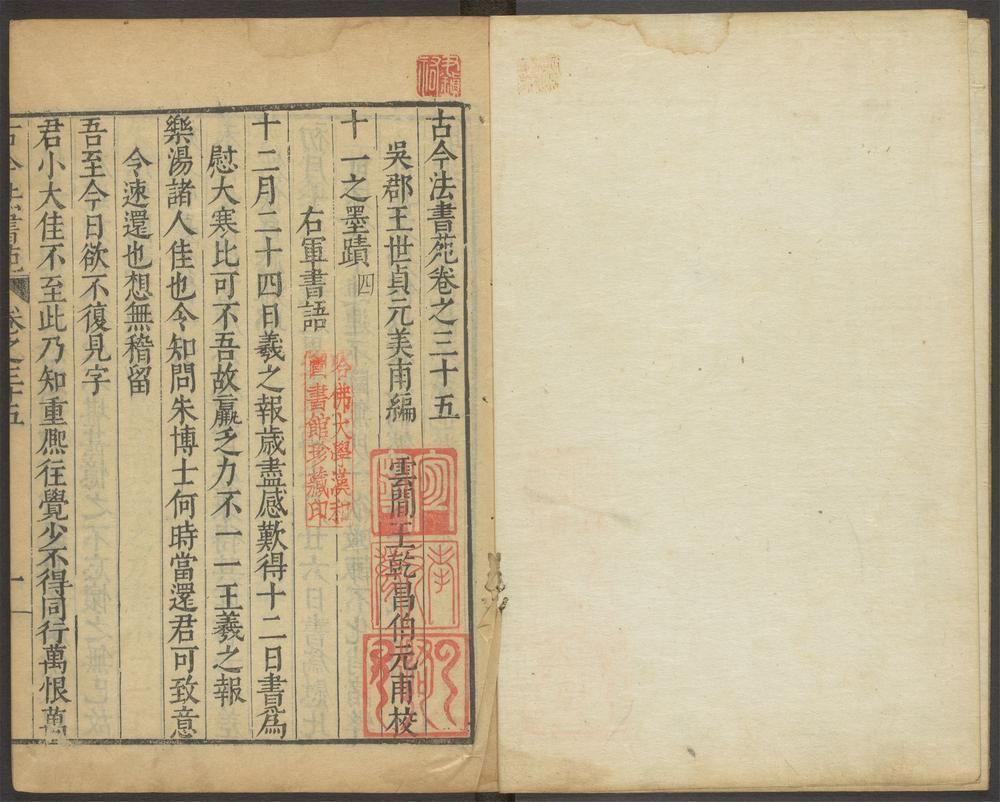 古今法書苑卷之三十五
吳郡王世貞元美甫編　雲間王乾昌伯元甫校
十一之墨蹟四
右軍書語
十二月二十四日羲之報歲盡感歎得十二日書爲
慰大寒比可不吾故羸乏力不一一王羲之報
樂湯諸人佳也今知問朱博士何時當還君可致意
令速還也想無稽留
吾至今日欲不復見字
君小大佳不至此乃知重熈往覺少不得同行萬恨萬
古今法書苑　卷之三十五　一
哈佛大學漢和
圖書館珍藏印